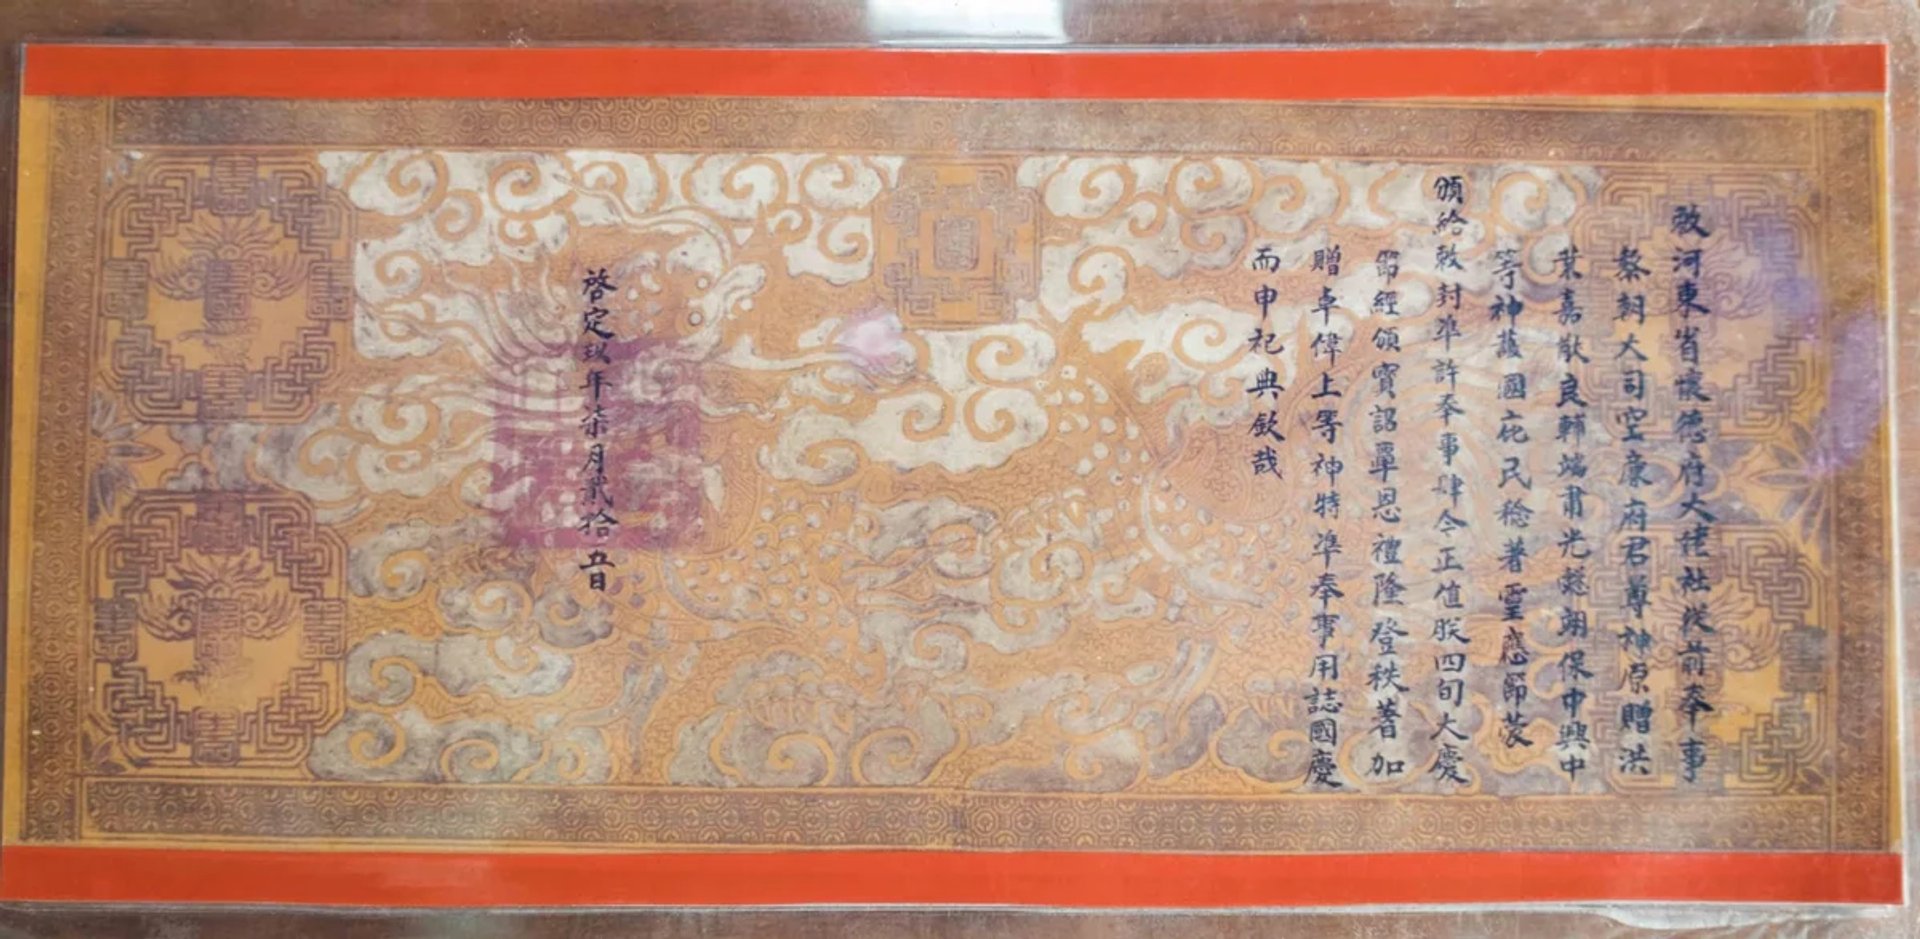 敕河東省懷德府大佬社從前奉事
黎朝大司空康府君尊神原贈洪
業嘉猷良輔端肅光懿翊保中興中
等神護國庇民稔著靈應節蒙
頒給敕封准許奉事肆今正值朕四旬大慶
節經頒寶詔覃恩禮隆登秩著加
贈卓偉上等神特準奉事用誌國慶
而申祀典欽哉
啓定玖年柒月貳拾五日